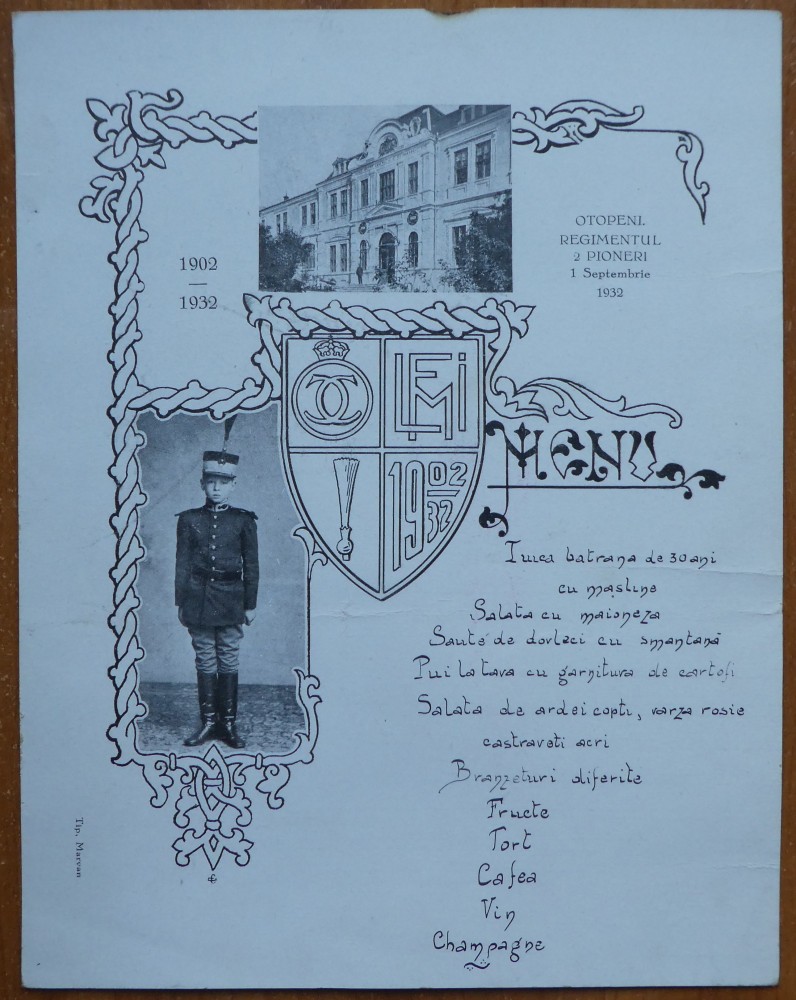 1902
—
1932
OTOPENI.
REGIMENTUL
2 PIONERI
1 Septembrie
1932
LFMI
1902
32
MENU
Tuica batrana de 30 ani
cu masline
Salata cu maioneza
Sauté de dovleci cu smantană
Pui la tava cu garnitura de cartofi
Salata de ardei copti, varza rosie
castraveti acri
Branzeturi diferite
Fructe
Tort
Cafea
Vin
Champagne
Tip. Marvan